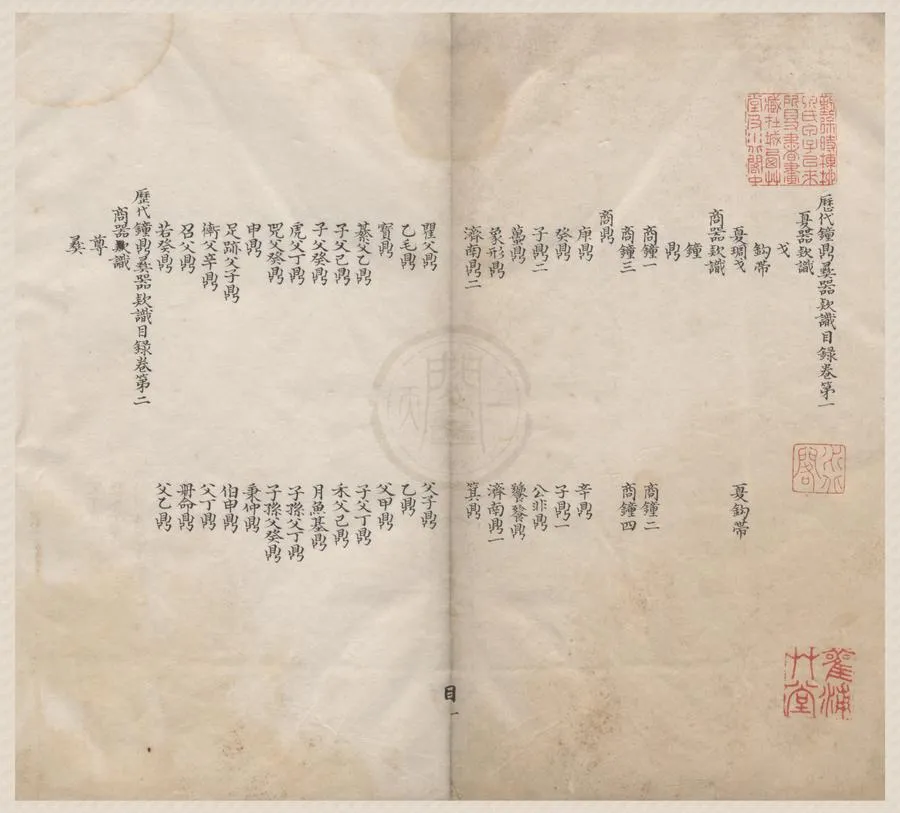 歷代鐘鼎彝器欵識目録卷第一
夏器欵識
戈
鈎帶
夏琱戈 夏鈎帶
商器欵識
鐘
鼎
商鐘一 商鐘二
商鐘三 商鐘四
商鼎
庚鼎 辛鼎
癸鼎 子鼎一
子鼎二 公非鼎
蠆鼎 饕餮鼎
象形鼎 濟南鼎一
濟南鼎二 箕鼎
目一
瞿父鼎 父子鼎
乙毛鼎 乙鼎
寶鼎 父甲鼎
綦父乙鼎 子父丁鼎
子父己鼎 禾父己鼎
子父癸鼎 月魚基鼎
虎父丁鼎 子孫父丁鼎
兕父癸鼎 子孫父癸鼎
申鼎 秉仲鼎
足跡父子鼎 伯申鼎
衛父辛鼎 父丁鼎
召父鼎 冊命鼎
若癸鼎 父乙鼎
歷代鐘鼎彝器欵識目録卷第二
商器欵識
尊
彝